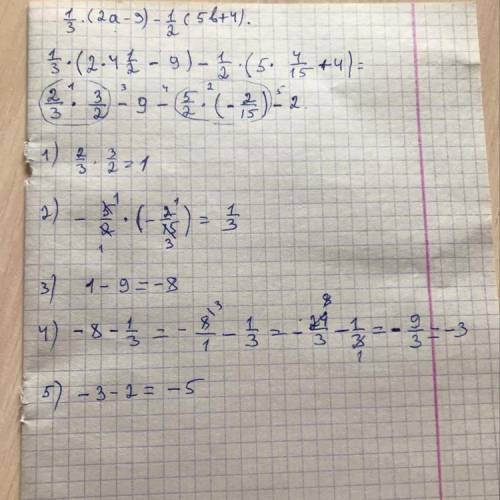 1/3 · (2a - 9) - 1/2 (5b + 4).
1/3 · (2 · 4 1/2 - 9) - 1/2 · (5 · 4/15 + 4) =
2/3 ·¹ 3/2 -³ 9 -⁴ 5/2 ·² (- 2/15) -⁵ 2
1) 2/3 · 3/2 = 1
2) - 5/2 · (- 2/15) = 1/3
3) 1 - 9 = -8
4) -8 - 1/3 = - 8/1 - 1/3 = - 24/3 - 1/3 = - 9/3 = -3
5) -3 - 2 = -5